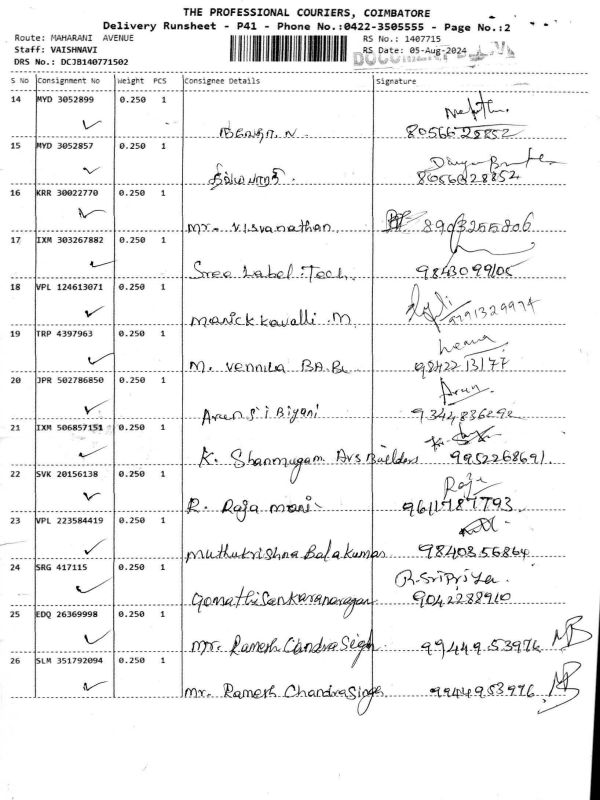 THE PROFESSIONAL COURIERS, COIMBATORE
Delivery Runsheet - P41 - Phone No.:0422-3505555 - Page No.:2
Route: MAHARANI AVENUE RS No.: 1407715
Staff: VAISHNAVI RS Date: 05-Aug-2024
DRS No.: DCJB140771502
S No Consignment No Weight PCS Consignee Details Signature
14 MYD 3052899 0.250 1
N. 8056628852
15 MYD 3052857 0.250 1
8056628852
16 KRR 30022770 0.250 1
Mr. Visvanathan 8903255806
17 IXM 303267882 0.250 1
Sree Label Tech
18 VPL 124613071 0.250 1
Manickkavalli .M 9791329974
19 TRP 4397963 0.250 1
M. Vennila BA.BL 9842213177
20 JPR 502786850 0.250 1 Arun
Arun Si Biyani 9344836292
21 IXM 506857151 0.250 1
K. Shanmugam Avs Builders 9952268691.
22 SVK 20156138 0.250 1 Raja
R. Raja mani 9611787793
23 VPL 223584419 0.250 1
Muthukrishna Balakumar 9840856864
24 SRG 417115 0.250 1 R.Sripriya.
Gomathi Sankaranarayan 9042288910
25 EDQ 26369998 0.250 1
Mr. Ramesh Chandra Singh 9944953976
26 SLM 351792094 0.250 1
Mr. Ramesh Chandra Singh 9944953976